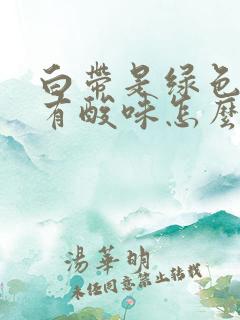 白带是绿色
有酸味怎麽
湯華明
未经同意禁止转载